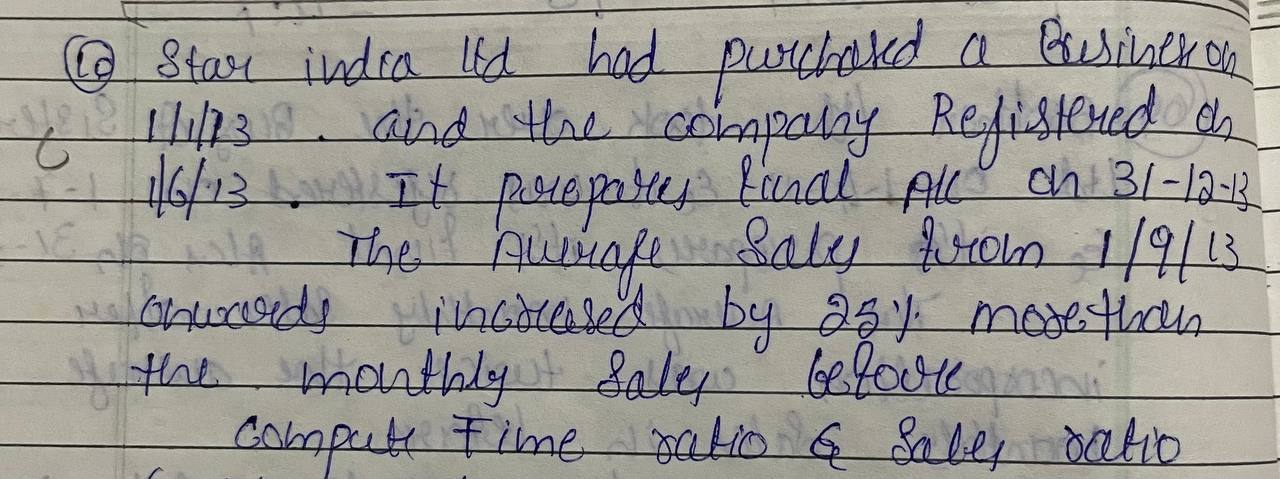 10 Star india ltd had purchased a Business on
1/1/13 . and the company Registered on
1/6/13 . It prepares final A/c on 31-12-13
The Average Sales from 1/9/13
onwards increased by 25% more than
the monthly Sales before
compute Time ratio & Sales ratio